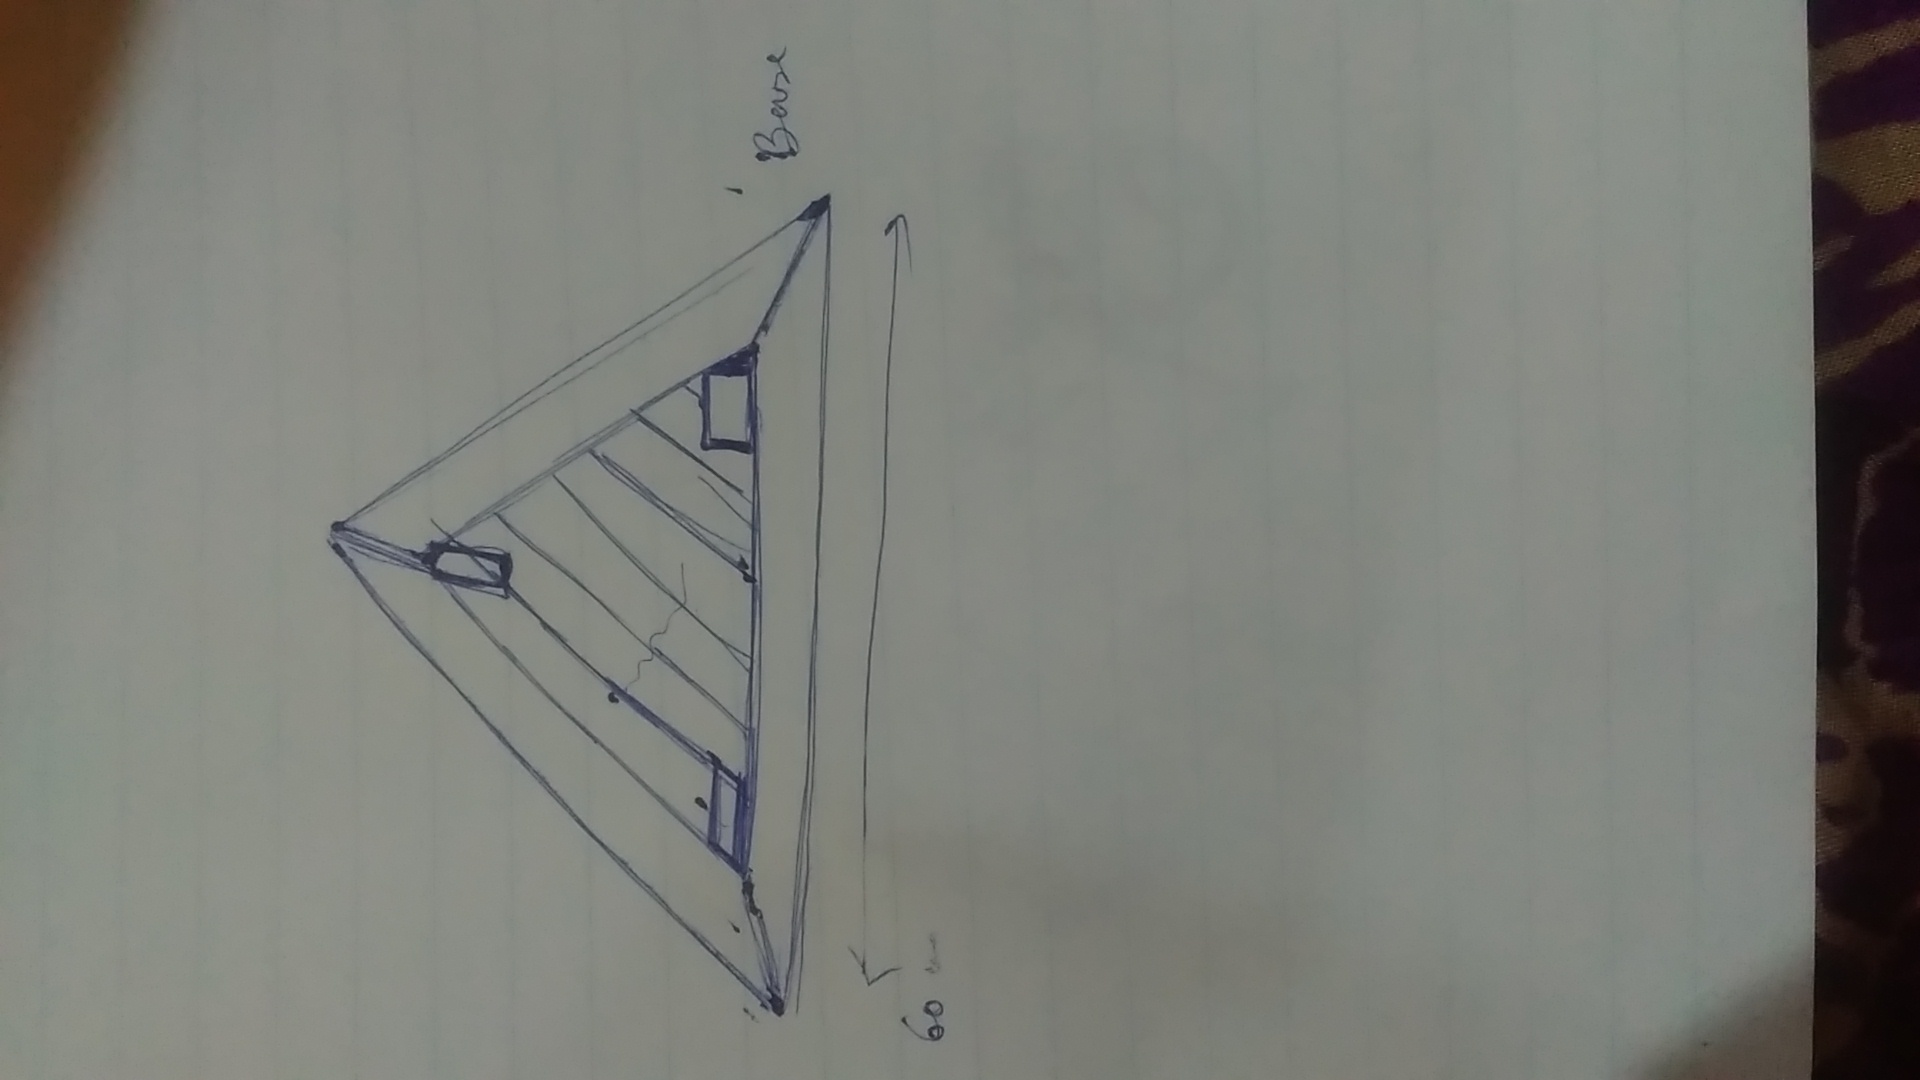 Base
60 cm